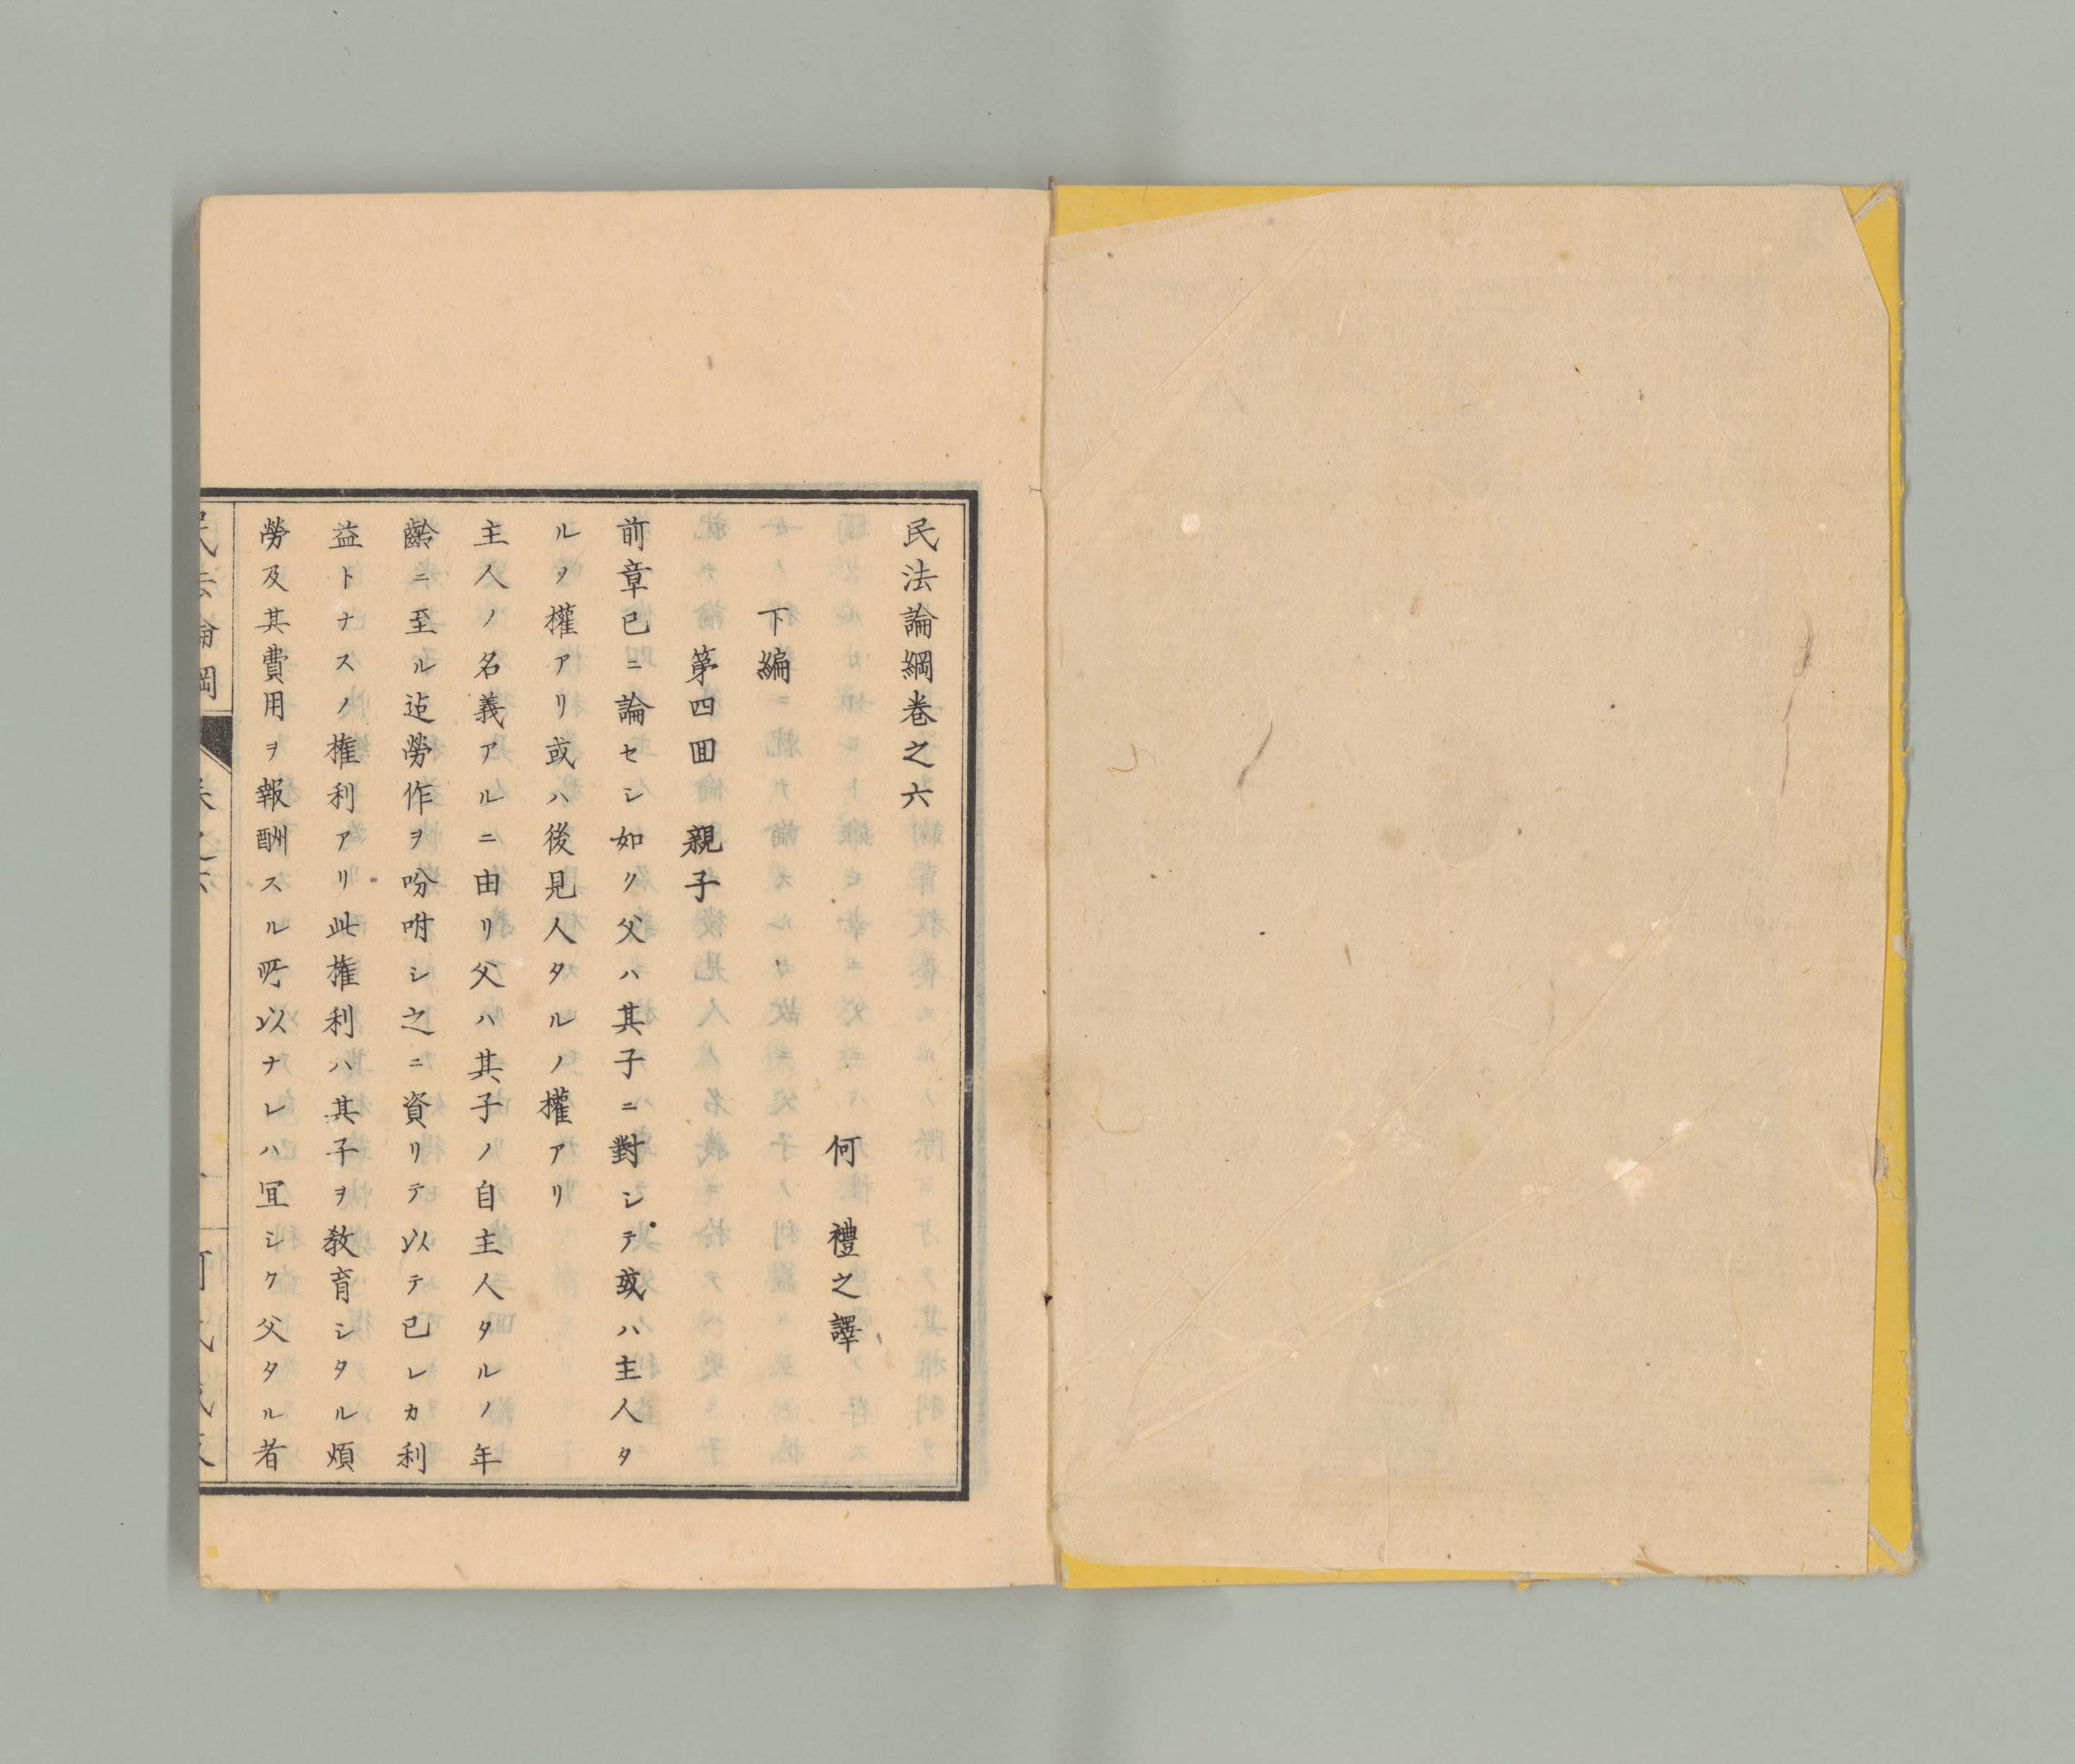 民法論綱卷之六
何　禮之譯
下編
第四囬　親子
前章已ニ論セシ如ク父ハ其子ニ對シテ或ハ主人タ
ルノ權アリ或ハ後見人タルノ權アリ
主人ノ名義アルニ由リ父ハ其子ノ自主人タルノ年
齡ニ至ル迠勞作ヲ吩咐シ之ニ資リテ以テ已レカ利
益トナスノ権利アリ此権利ハ其子ヲ敎育シタル煩
勞及其費用ヲ報酬スル所以ナレハ冝シク父タル者